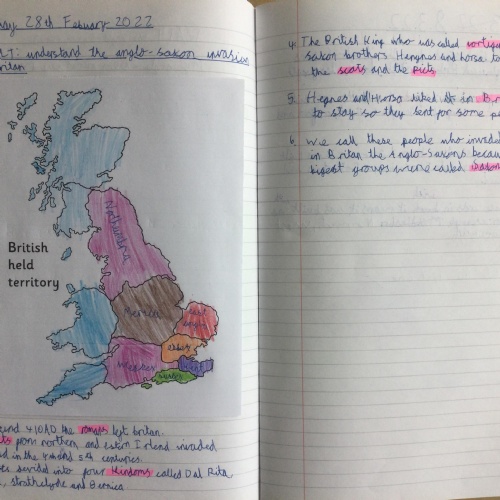 day 28th Febuary 2022
LI: understand the anglo-saxon invasion
Britan
Northumbria
British
held
territory
Mercia
East
Anglia
essex
Wessex
Kent
sussex
ound 410AD the romans left britan.
ots from northen and estern Irlend invaded
d in the 4th and 5th centuries.
were devided into four Kindoms called Dal Rita,
, strathclyde and Bernica
4. The British King who was called vortige
saxon brothers Hengnes and horsa to
the scots and the picts
5. Hegnes and Horsa liked it in Bri
to stay so they sent for some pe
6. we call these people who invaded
in Britan the Anglo-saxons becau
bigest groups were called saxons